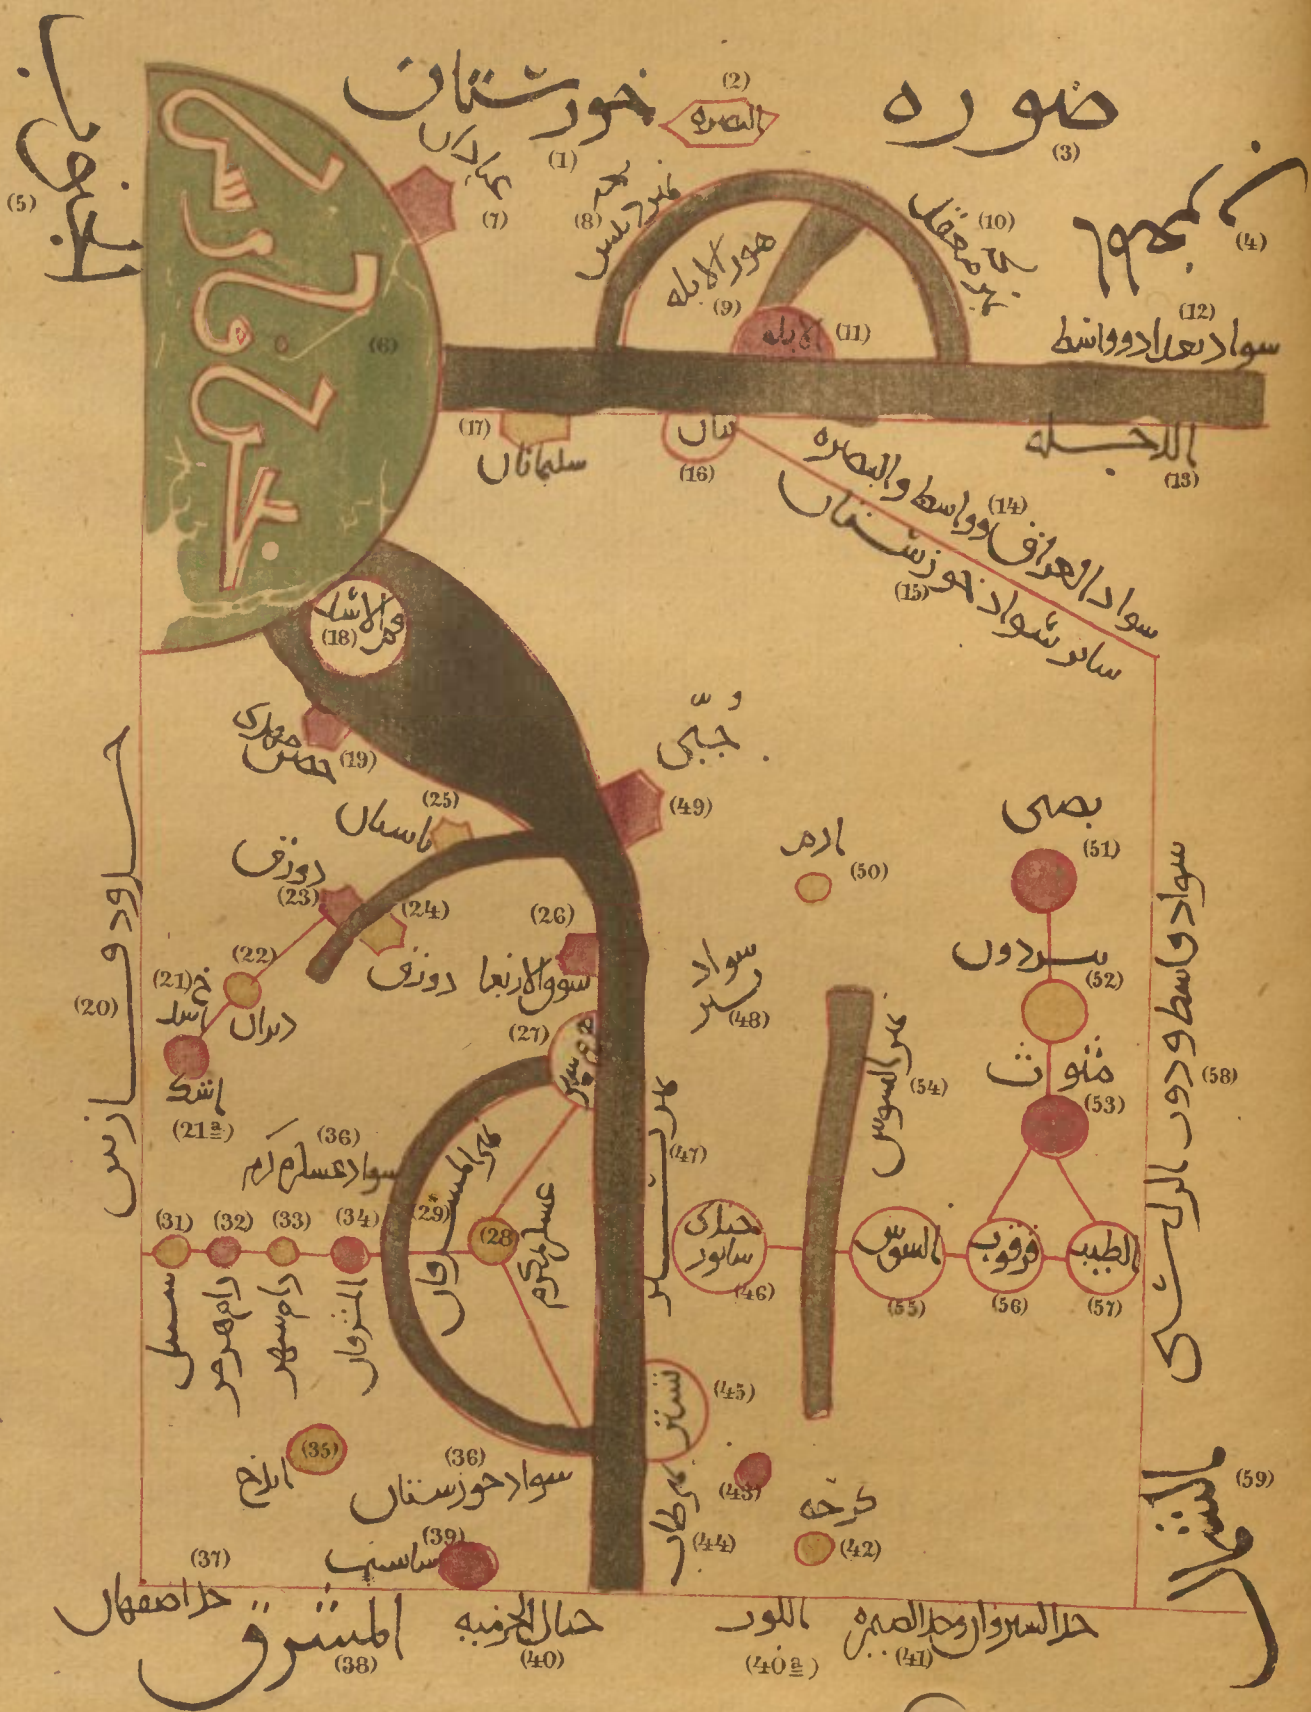 صوره
(3)
خورستان
(1)
البصره
(2)
(4)
الجنوب
(5)
بحر فارس
(6)
عبادان
(7)
نهر دبيس
(8)
خور الابله
(9)
نهر معقل
(10)
الابله
(11)
سواد بغداد وواسط
(12)
الدجله
(13)
سواد العراق وواسط والبصره
(14)
ساير سواد خوزستان
(15)
بيان
(16)
سليمانان
(17)
فم الاسد
(18)
حصن مهدى
(19)
حدود فارس
(20)
(21)
اسك
(21a)
(22)
ديران
دورق
(23)
دورق
(24)
باسيان
(25)
سوق الاربعا
(26)
(27)
عسكر مكرم
(28)
نهر المسرقان
(29)
سنبيل
(31)
رام هرمز
(32)
رام شهر
(33)
المشرقان
(34)
ايذج
(35)
سواد عسكر مكرم
(36)
سواد خوزستان
(36)
حد اصفهان
(37)
المشرق
(38)
ساسيب
(39)
جبال الخرميه
(40)
اللور
(40a)
حد السيروان وحد الصيمره
(41)
كرخه
(42)
(43)
(44)
تستر
(45)
جندى سابور
(46)
نهر تستر
(47)
سواد تستر
(48)
جبّى
(49)
ادم
(50)
بصنى
(51)
بيردون
(52)
متوث
(53)
نهر السوس
(54)
السوس
(55)
قرقوب
(56)
الطيب
(57)
سواد واسط ودور الراسبى
(58)
الشمال
(59)